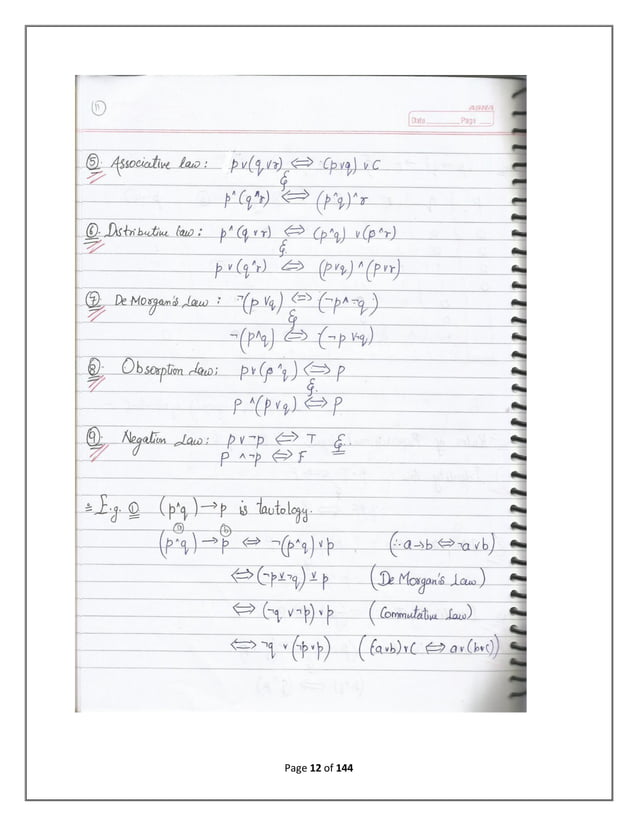 11
ASNA
Date Page
⑤. Associative law: p∨(q∨r) ⇔ (p∨q)∨C
&
p^(q^r) ⇔ (p^q)^r
⑥. Distributive law: p^(q∨r) ⇔ (p^q) ∨(p^r)
&
p∨(q^r) ⇔ (p∨q)^(p∨r)
⑦. De Morgan's Law: ¬(p∨q) ⇔ (¬p^¬q)
&
¬(p^q) ⇔ (¬p∨¬q)
⑧. Obsorption Law: p∨(p^q) ⇔ p
&
p^(p∨q) ⇔ p
⑨. Negation Law: p∨¬p ⇔ T &
p^¬p ⇔ F
E.g. ① (p^q)→p is tautology.
ⓐ ⓑ
(p^q)→p ⇔ ¬(p^q)∨p (∴ a→b ⇔ ¬a∨b)
⇔ (¬p∨¬q)∨p (De Morgan's Law)
⇔ (¬q∨¬p)∨p (Commutative Law)
⇔ ¬q∨(¬p∨p) ((a∨b)∨C ⇔ a∨(b∨c))
Page 12 of 144